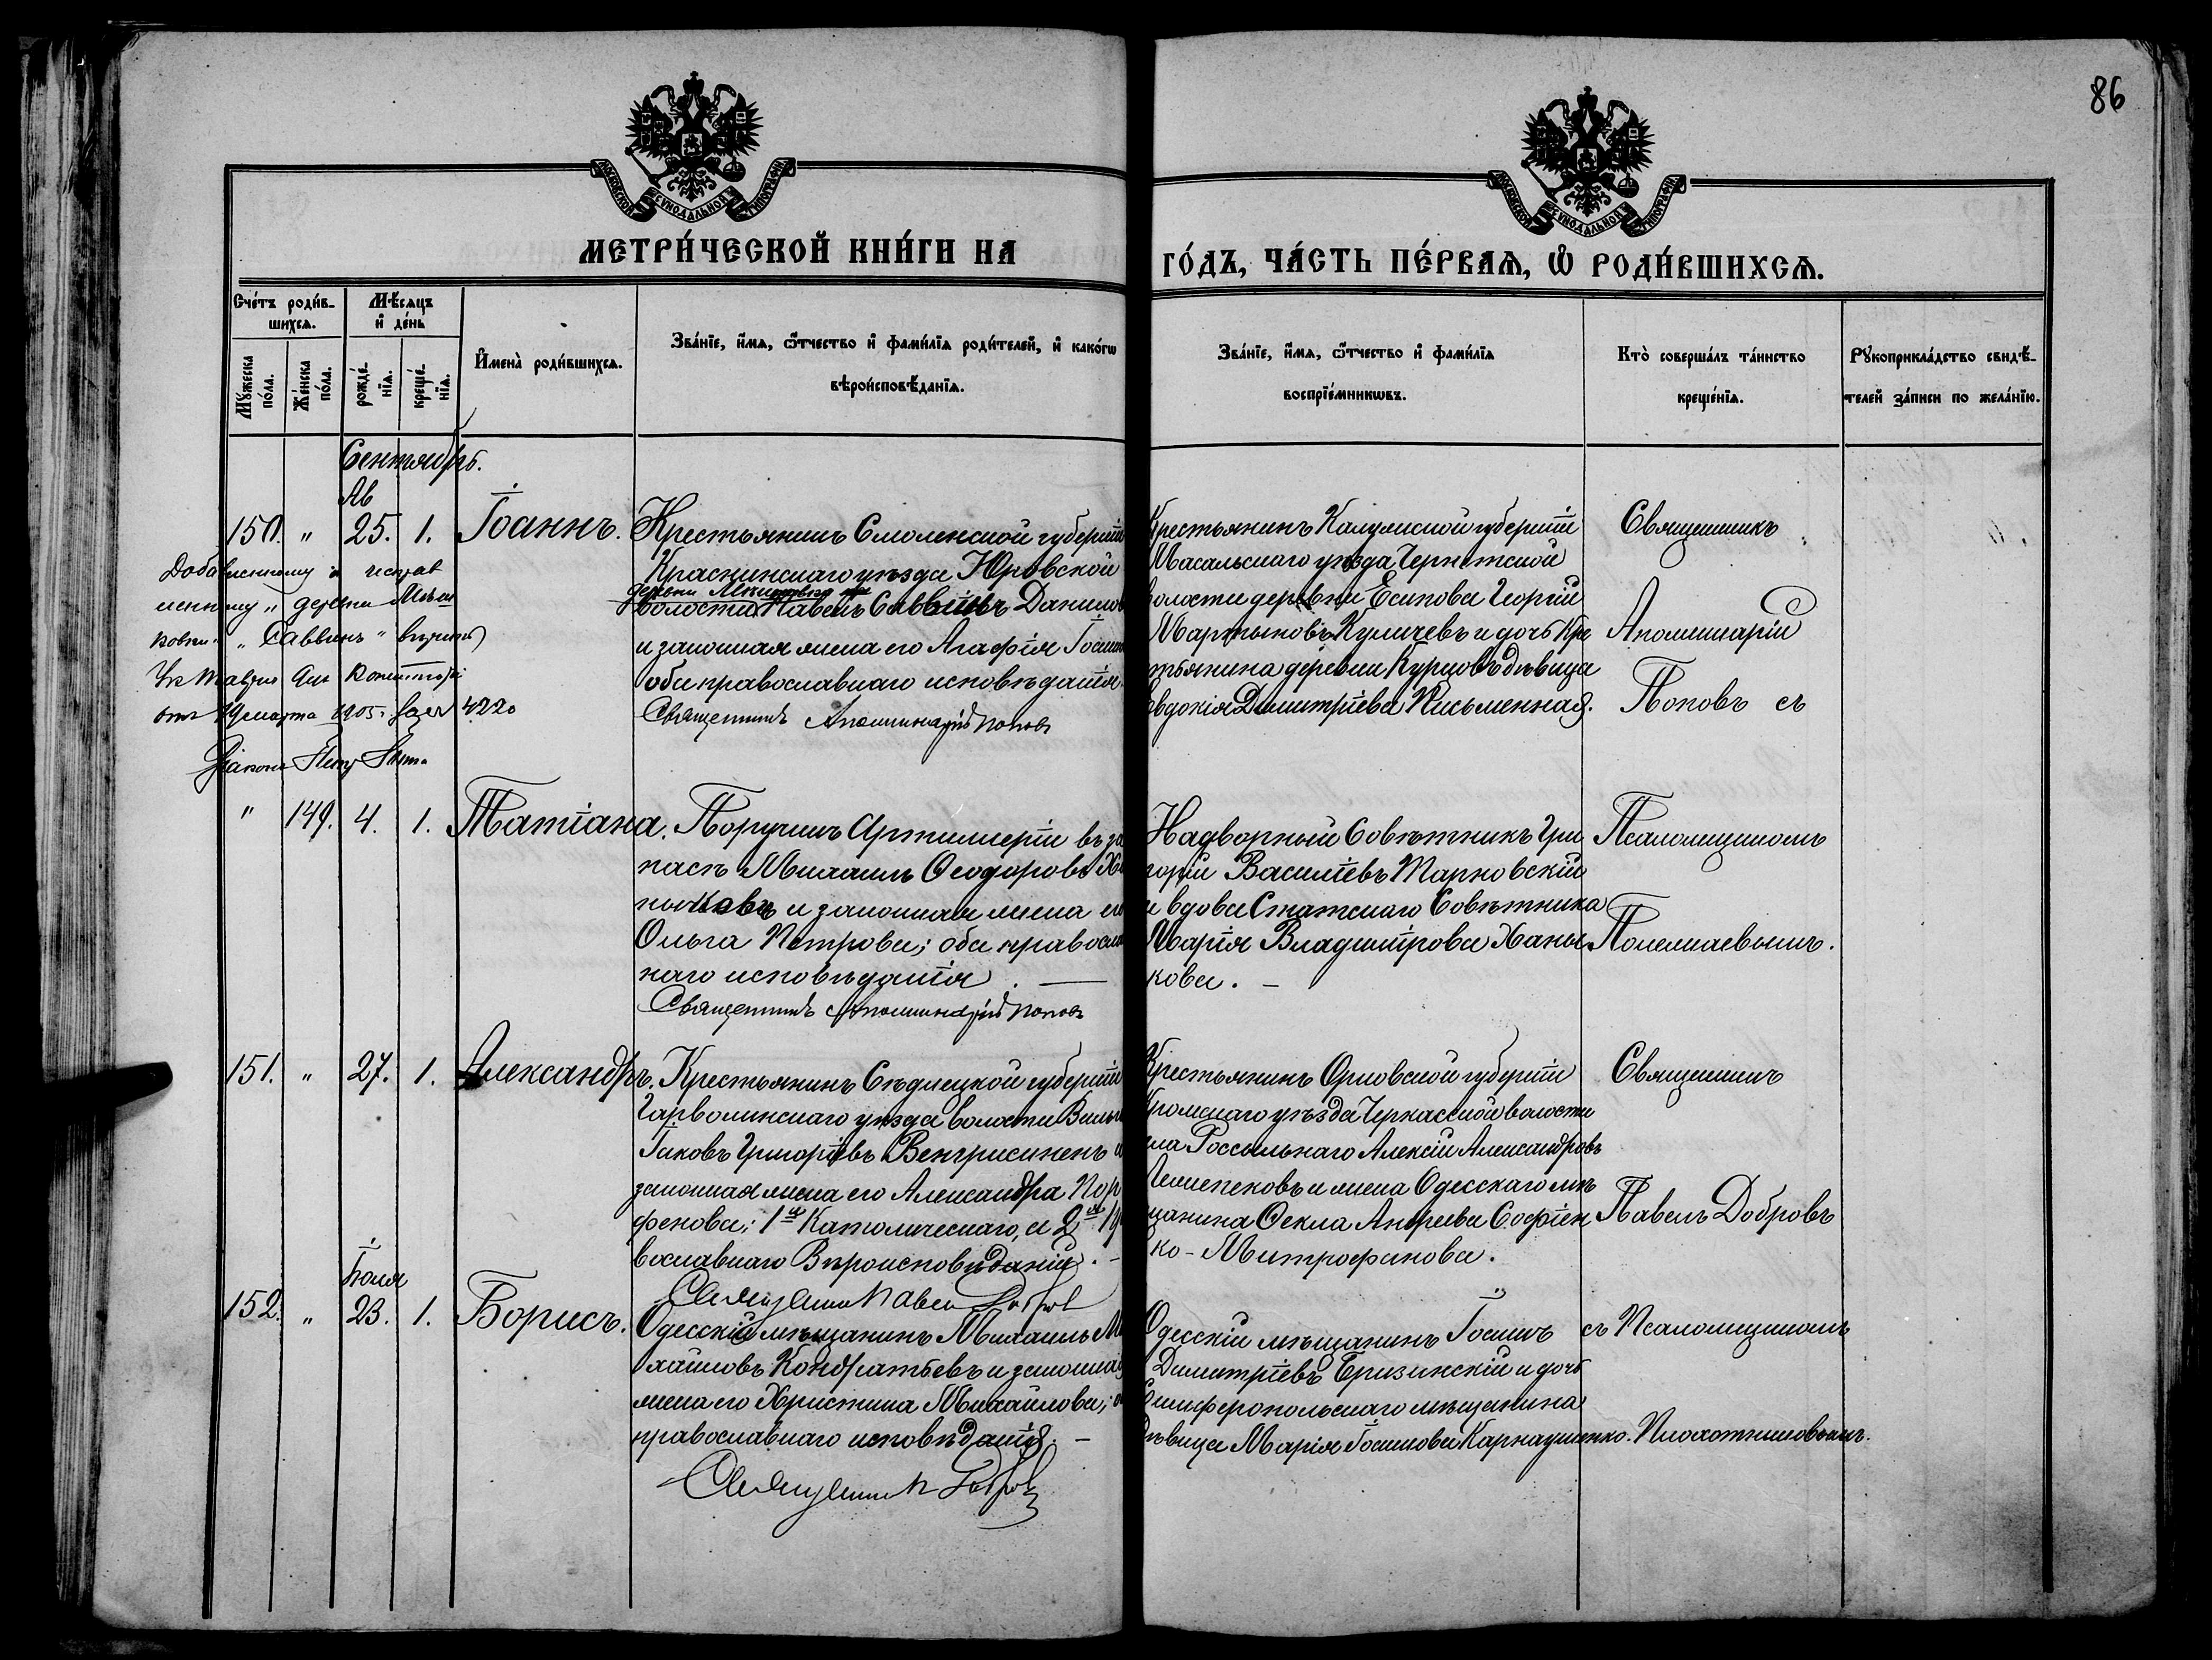 86
МОСКОВСКОЙ СѴНОДАЛЬНОЙ ТИПОГРАФІИ
МОСКОВСКОЙ СѴНОДАЛЬНОЙ ТИПОГРАФІИ
МЕТРИ́ЧЕСКОЙ КНИ́ГИ НА
ГО́ДЪ, ЧА́СТЬ ПЕ́РВАѦ, Ѡ҆ РОДИ́ВШИХСѦ.
Сче́тъ роди́в-
шихсѧ.
Мꙋ́жеска по́ла.
Же́нска по́ла.
Мѣ́сѧцъ
и҆ де́нь
рожде́-
нїѧ.
креще́-
нїѧ.
И҆мена̀ роди́вшихсѧ.
Зва́нїе, и҆́мѧ, ѻ҆́тчество и҆ фами́лїѧ роди́телей, и҆ како́гѡ
вѣроисповѣ́данїѧ.
Зва́нїе, и҆́мѧ, ѻ҆́тчество и҆ фами́лїѧ
воспрїе́мникѡвъ.
Кто̀ соверша́лъ та́инство
креще́нїѧ.
Рꙋкоприкла́дство свидѣ́-
телей за́писи по жела́нїю.
Сентябрь.
Ав
150. " 25. 1. Іоаннъ.
Крестьянинъ Смоленской губерніи
Краснинскаго уѣзда Юровской
деревни
волости Павелъ Саввинъ Данилов
и законная жена его Агафія Іоанн
оба православнаго исповѣданія.
Священникъ Аполлинарій Попов
Крестьянинъ Калужской губерніи
Масальскаго уѣзда Чернетской
волости деревни Есипова Георгій
Мартыновъ Куличевъ и дочь Кре
тьянина деревни Курцовъ дѣвица
Евдокія Димитріева Письменная.
Священникъ
Аполлинарій
Поповъ съ
Добавленному и исправ
ленному " деревни
" Саввинъ " вѣрить
от марта 1905. 4220
Діаконъ
" 149. 4. 1. Татіана.
Поручикъ Артиллеріи въ за
пасѣ Михаилъ Ѳеодоровъ Ха
ныковъ и законная жена его
Ольга Петрова; оба правосла
наго исповѣданія. —
Священникъ Аполлинарій Поповъ
Надворный Совѣтникъ Гри
горій Василіевъ Тарновскій
и вдова Статскаго Совѣтника
Марія Владимірова Ханы
кова. –
Псаломщикомъ
151. " 27. 1. Александръ.
Крестьянинъ Сѣдлецкой губерніи
Гарволинскаго уѣзда волости
Іаковъ Григоріевъ и
законная жена его Александра Пор
фенова; 1й Католическаго, а 2я Пра
вославнаго Вѣроисповѣданія. –
Священник Павел Добров
Крестьянинъ Орловской губерніи
Кромскаго уѣзда Черкасской волости
Алексій Александровъ
и жена Одесскаго мѣ
щанина Ѳекла Андреева Софіен
ко-Митрофанова.
Священникъ
Павелъ Добровъ
Іюля
152. " 23. 1. Борисъ.
Одесскій мѣщанинъ Михаилъ Ми
хайловъ Кондратьевъ и законная
жена его Христина Михайлова;
православнаго исповѣданія. –
Священник П Добров
Одесскій мѣщанинъ Іоаннъ
Димитріевъ Бризинскій и дочь
Симферопольскаго мѣщанина
дѣвица Марія Іоаннова Карнаушенко.
съ Псаломщикомъ
Плохотниковымъ.